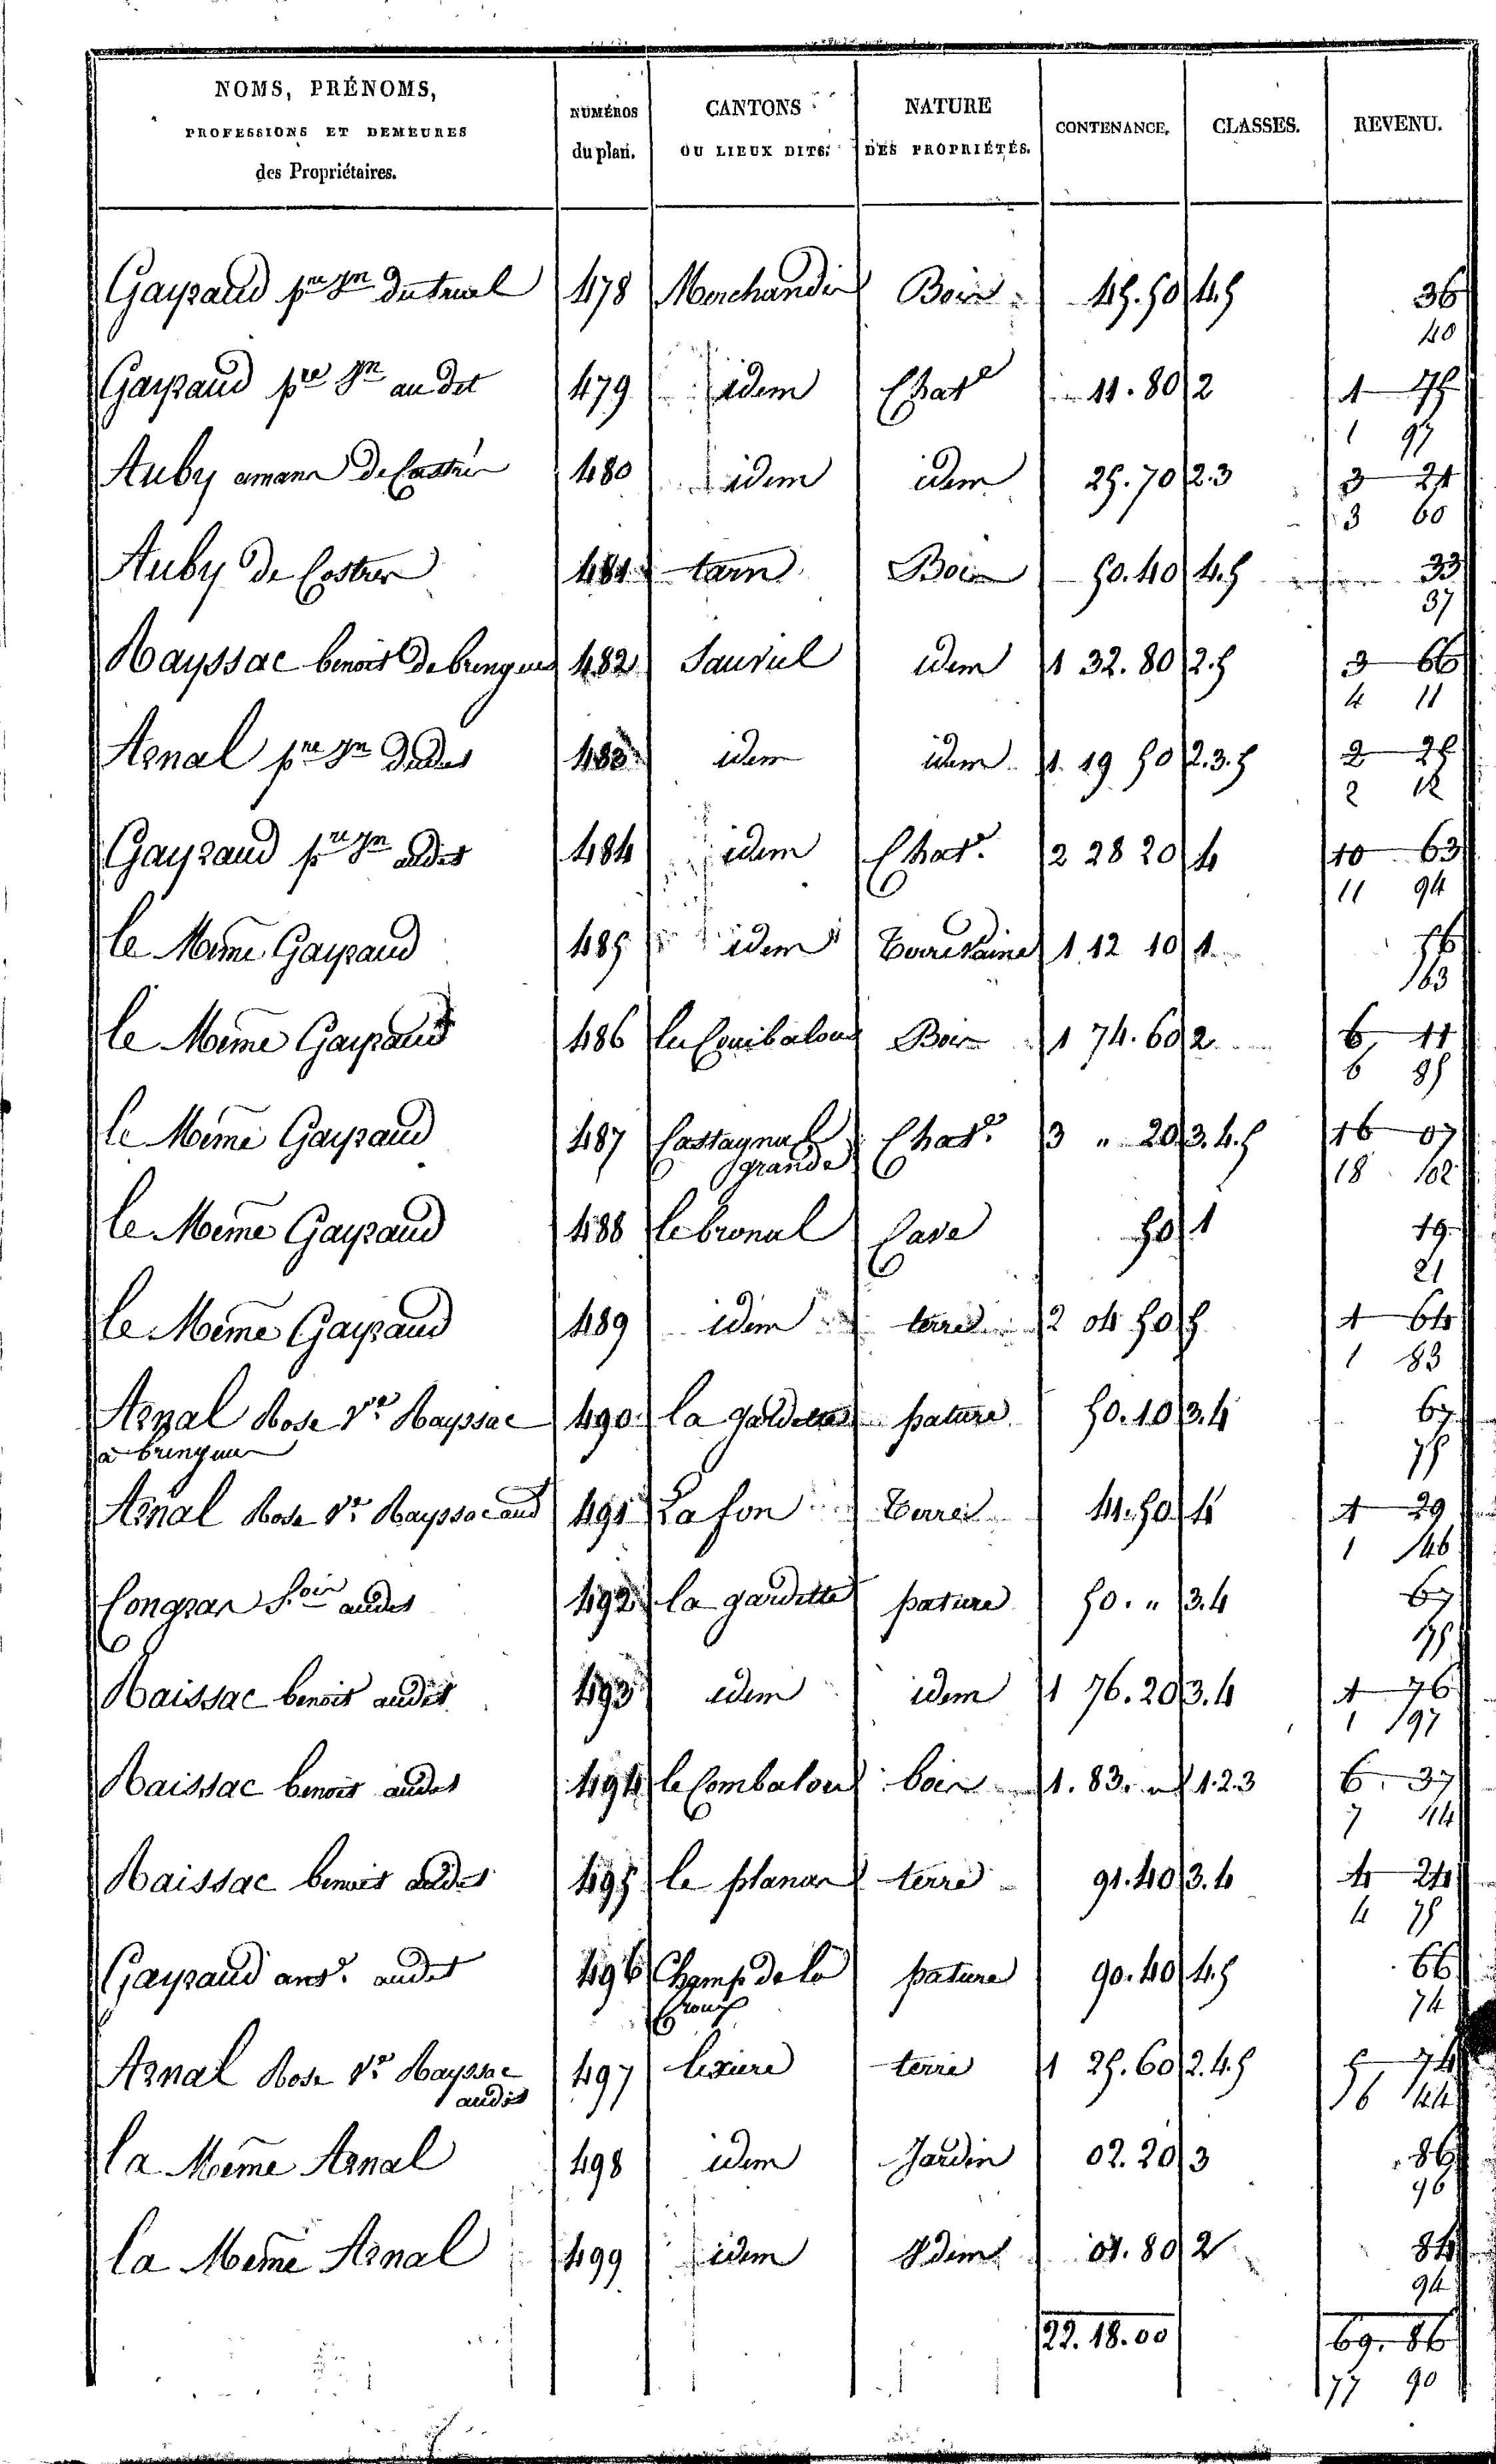 NOMS, PRÉNOMS,
PROFESSIONS ET DEMEURES
des Propriétaires.
NUMÉROS
du plan.
CANTONS
OU LIEUX DITS.
NATURE
DES PROPRIÉTÉS.
CONTENANCE.
CLASSES.
REVENU.
Gayraud pre Jn du truel 478 Bois 45.50 4.5 36
40
Gayraud pre Jn au dit 479 idem Chate 11.80 2 1 75
1 97
Auby amans de Castrés 480 idem idem 25.70 2.3 3 21
3 60
Auby de Costrés 481 tarn Bois 50.40 4.5 33
37
Rayssac benoit de bringues 482 Sauviel idem 1 32.80 2.5 3 66
4 11
Arnal pre Jn dudit 483 idem idem 1. 19 50 2.3.5 2 25
2 12
Gayraud pre Jn audit 484 idem Chate. 2 28 20 4 10 63
11 94
le Même Gayraud 485 idem 1 12 10 1 56
63
le Même Gayraud 486 Bois 1 74.60 2 6 11
6 85
le Même Gayraud 487 Castagnal Chate. 3 " 20 3.4.5 16 07
grande 18 02
le Même Gayraud 488 le bronal Case 50 1 19
21
le Même Gayraud 489 idem terre 2 04 50 5 1 64
1 83
Arnal Rose Ve Rayssac 490 la gardette pature 50.10 3.4 67
a bringues 75
Arnal Rose Ve Rayssac aud 491 La fon Terre 41.50 4 1 29
1 46
audit 492 la gardette pature 50. " 3.4 67
75
Raissac benoit audit 493 idem idem 1 76.20 3.4 1 76
1 97
Raissac benoit audit 494 le Combalou bois 1. 83. " 1.2.3 6. 37
7 14
Raissac benoit audit 495 le planas terre 91.40 3.4 4 24
4 75
Gayraud ante. audit 496 Champ de la pature 90.40 4.5 66
Croux 74
Arnal Rose Ve Rayssac 497 terre 1 25.60 2.4.5 5 74
audit 6 44
la Même Arnal 498 idem Jardin 02.20 3 86
96
la Même Arnal 499 idem Idem 01.80 2 84
94
22.18.00 69.86
77 90